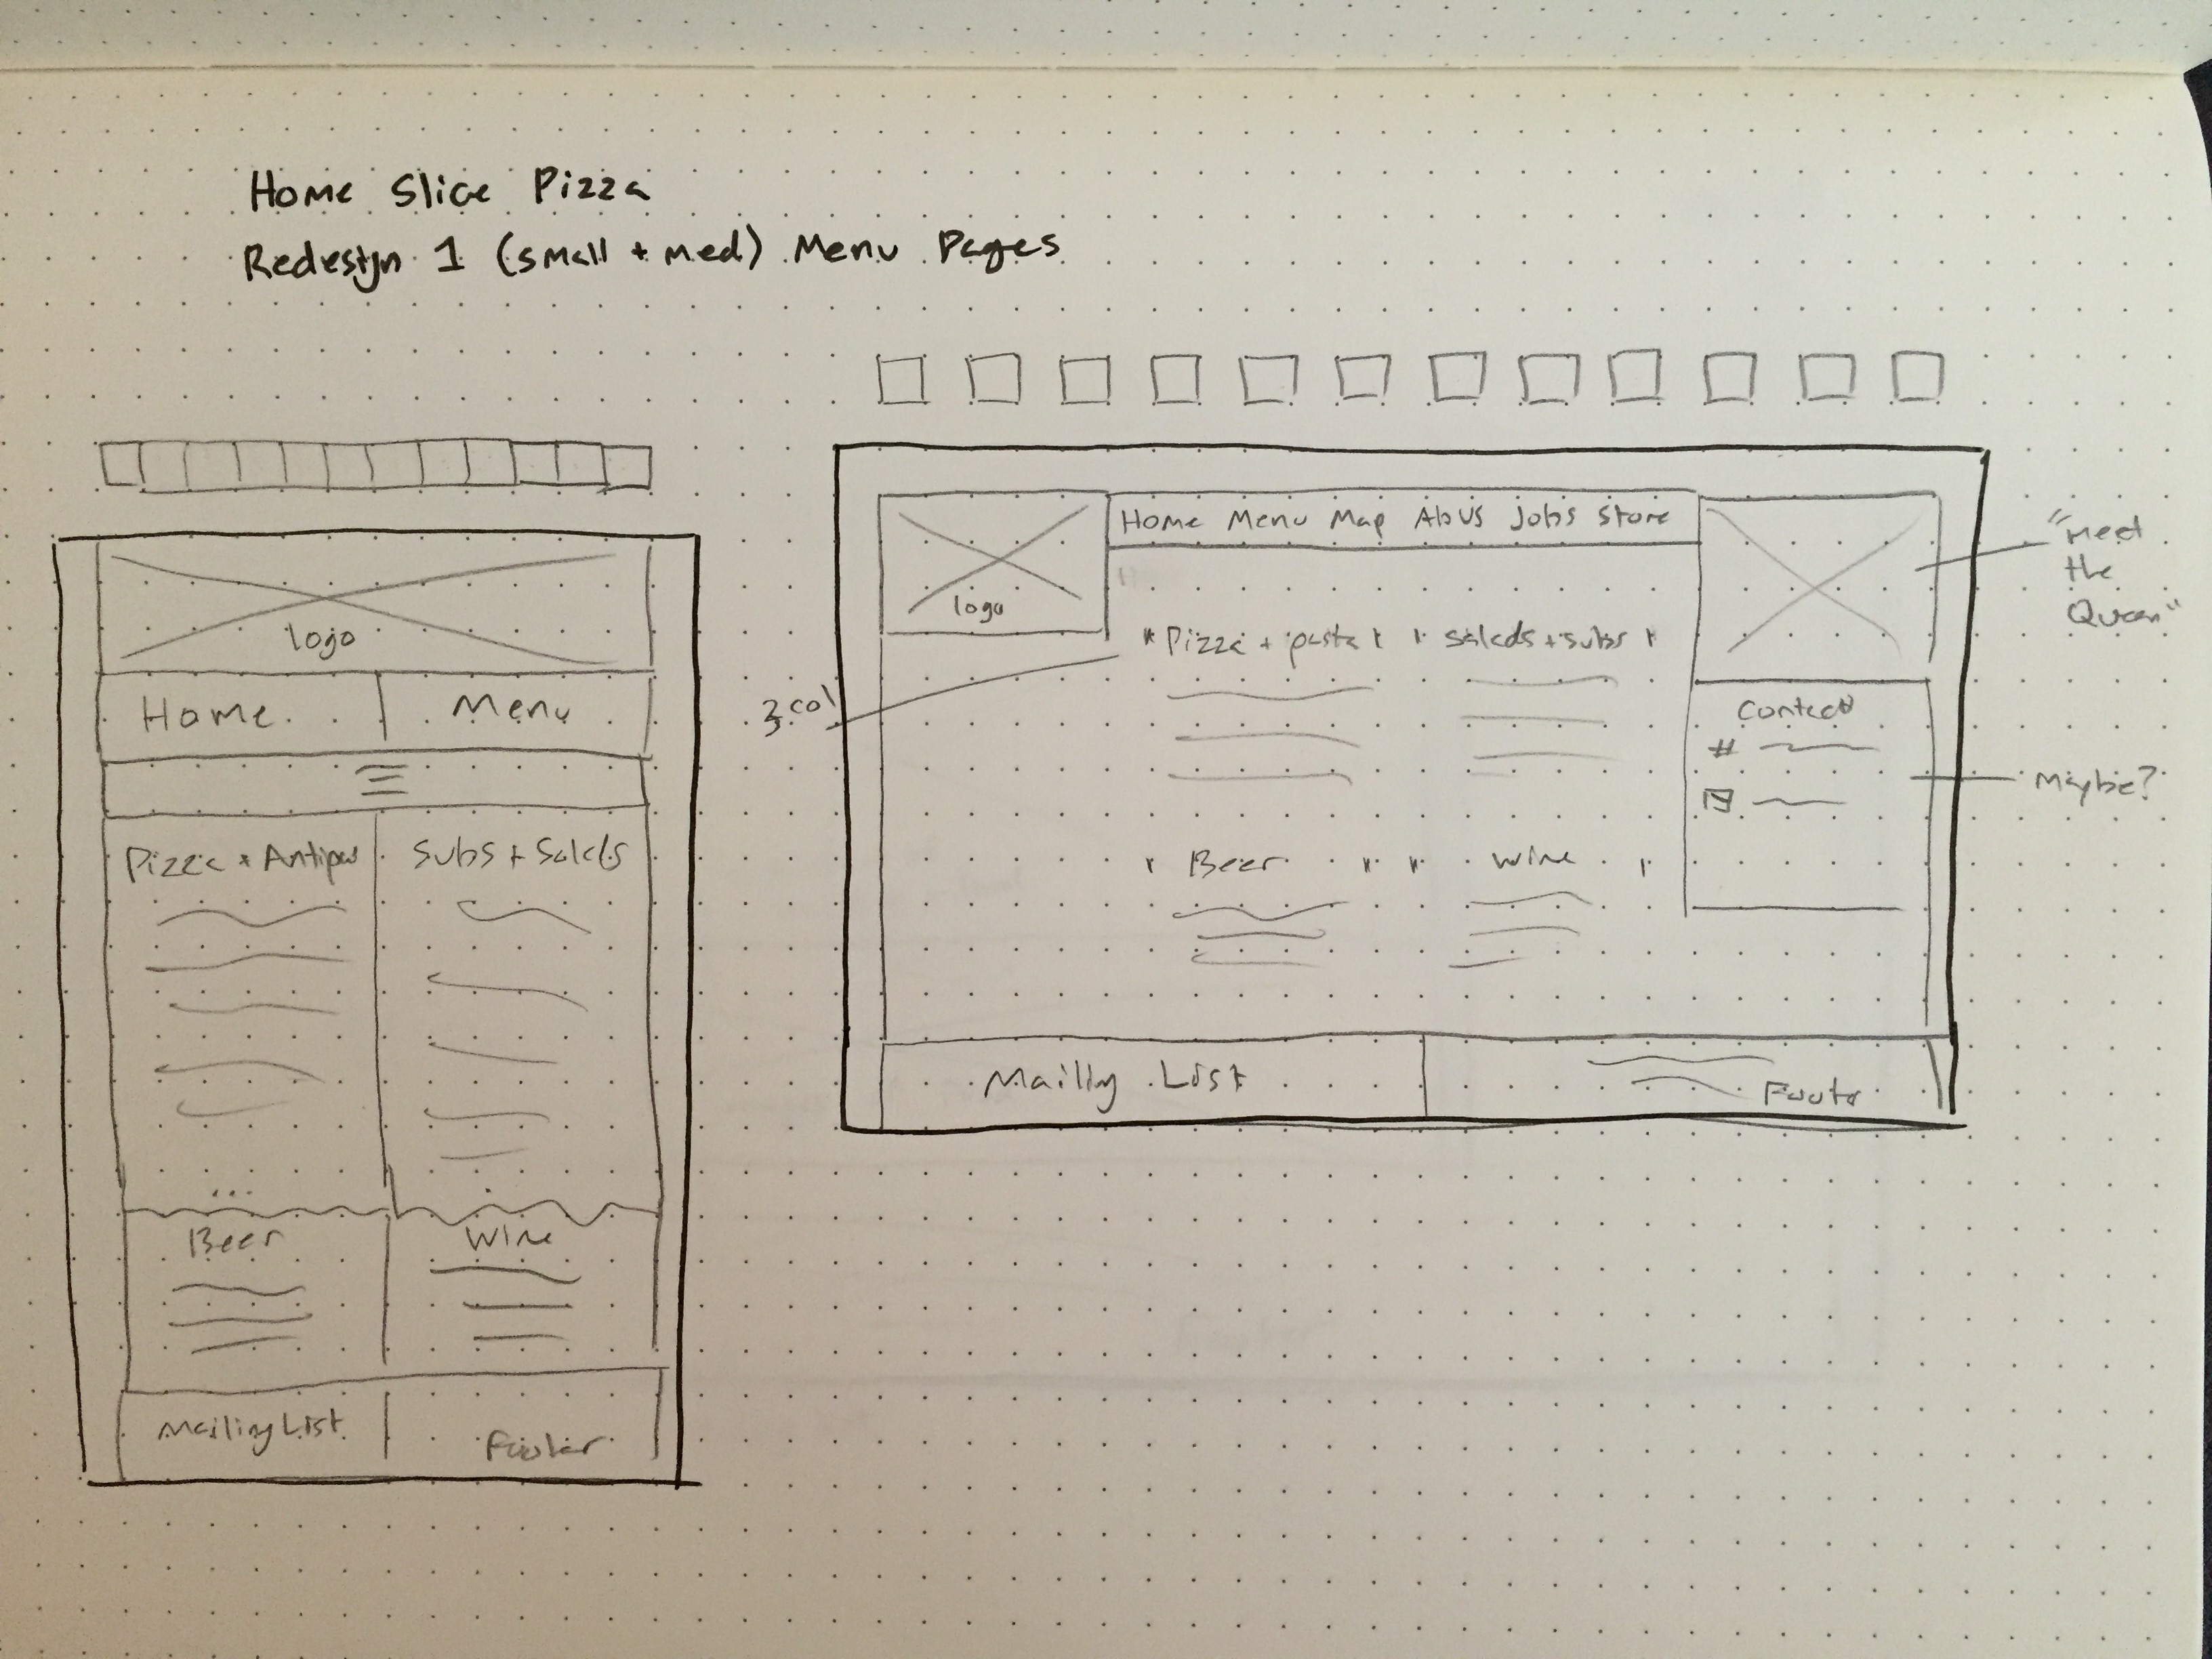 Home Slice Pizza
Redesign 1 (small + med) Menu Pages
logo
Home
Menu
Pizza + Antipas
Subs + Salads
...
Beer
Wine
Mailing List
Footer
Home Menu Map Ab Us Jobs Store
logo
"Meet
the
Queen"
3 col
" Pizza + pasta "
" Salads + subs "
Contact
#
Maybe?
" Beer "
" Wine "
Mailing List
Footer